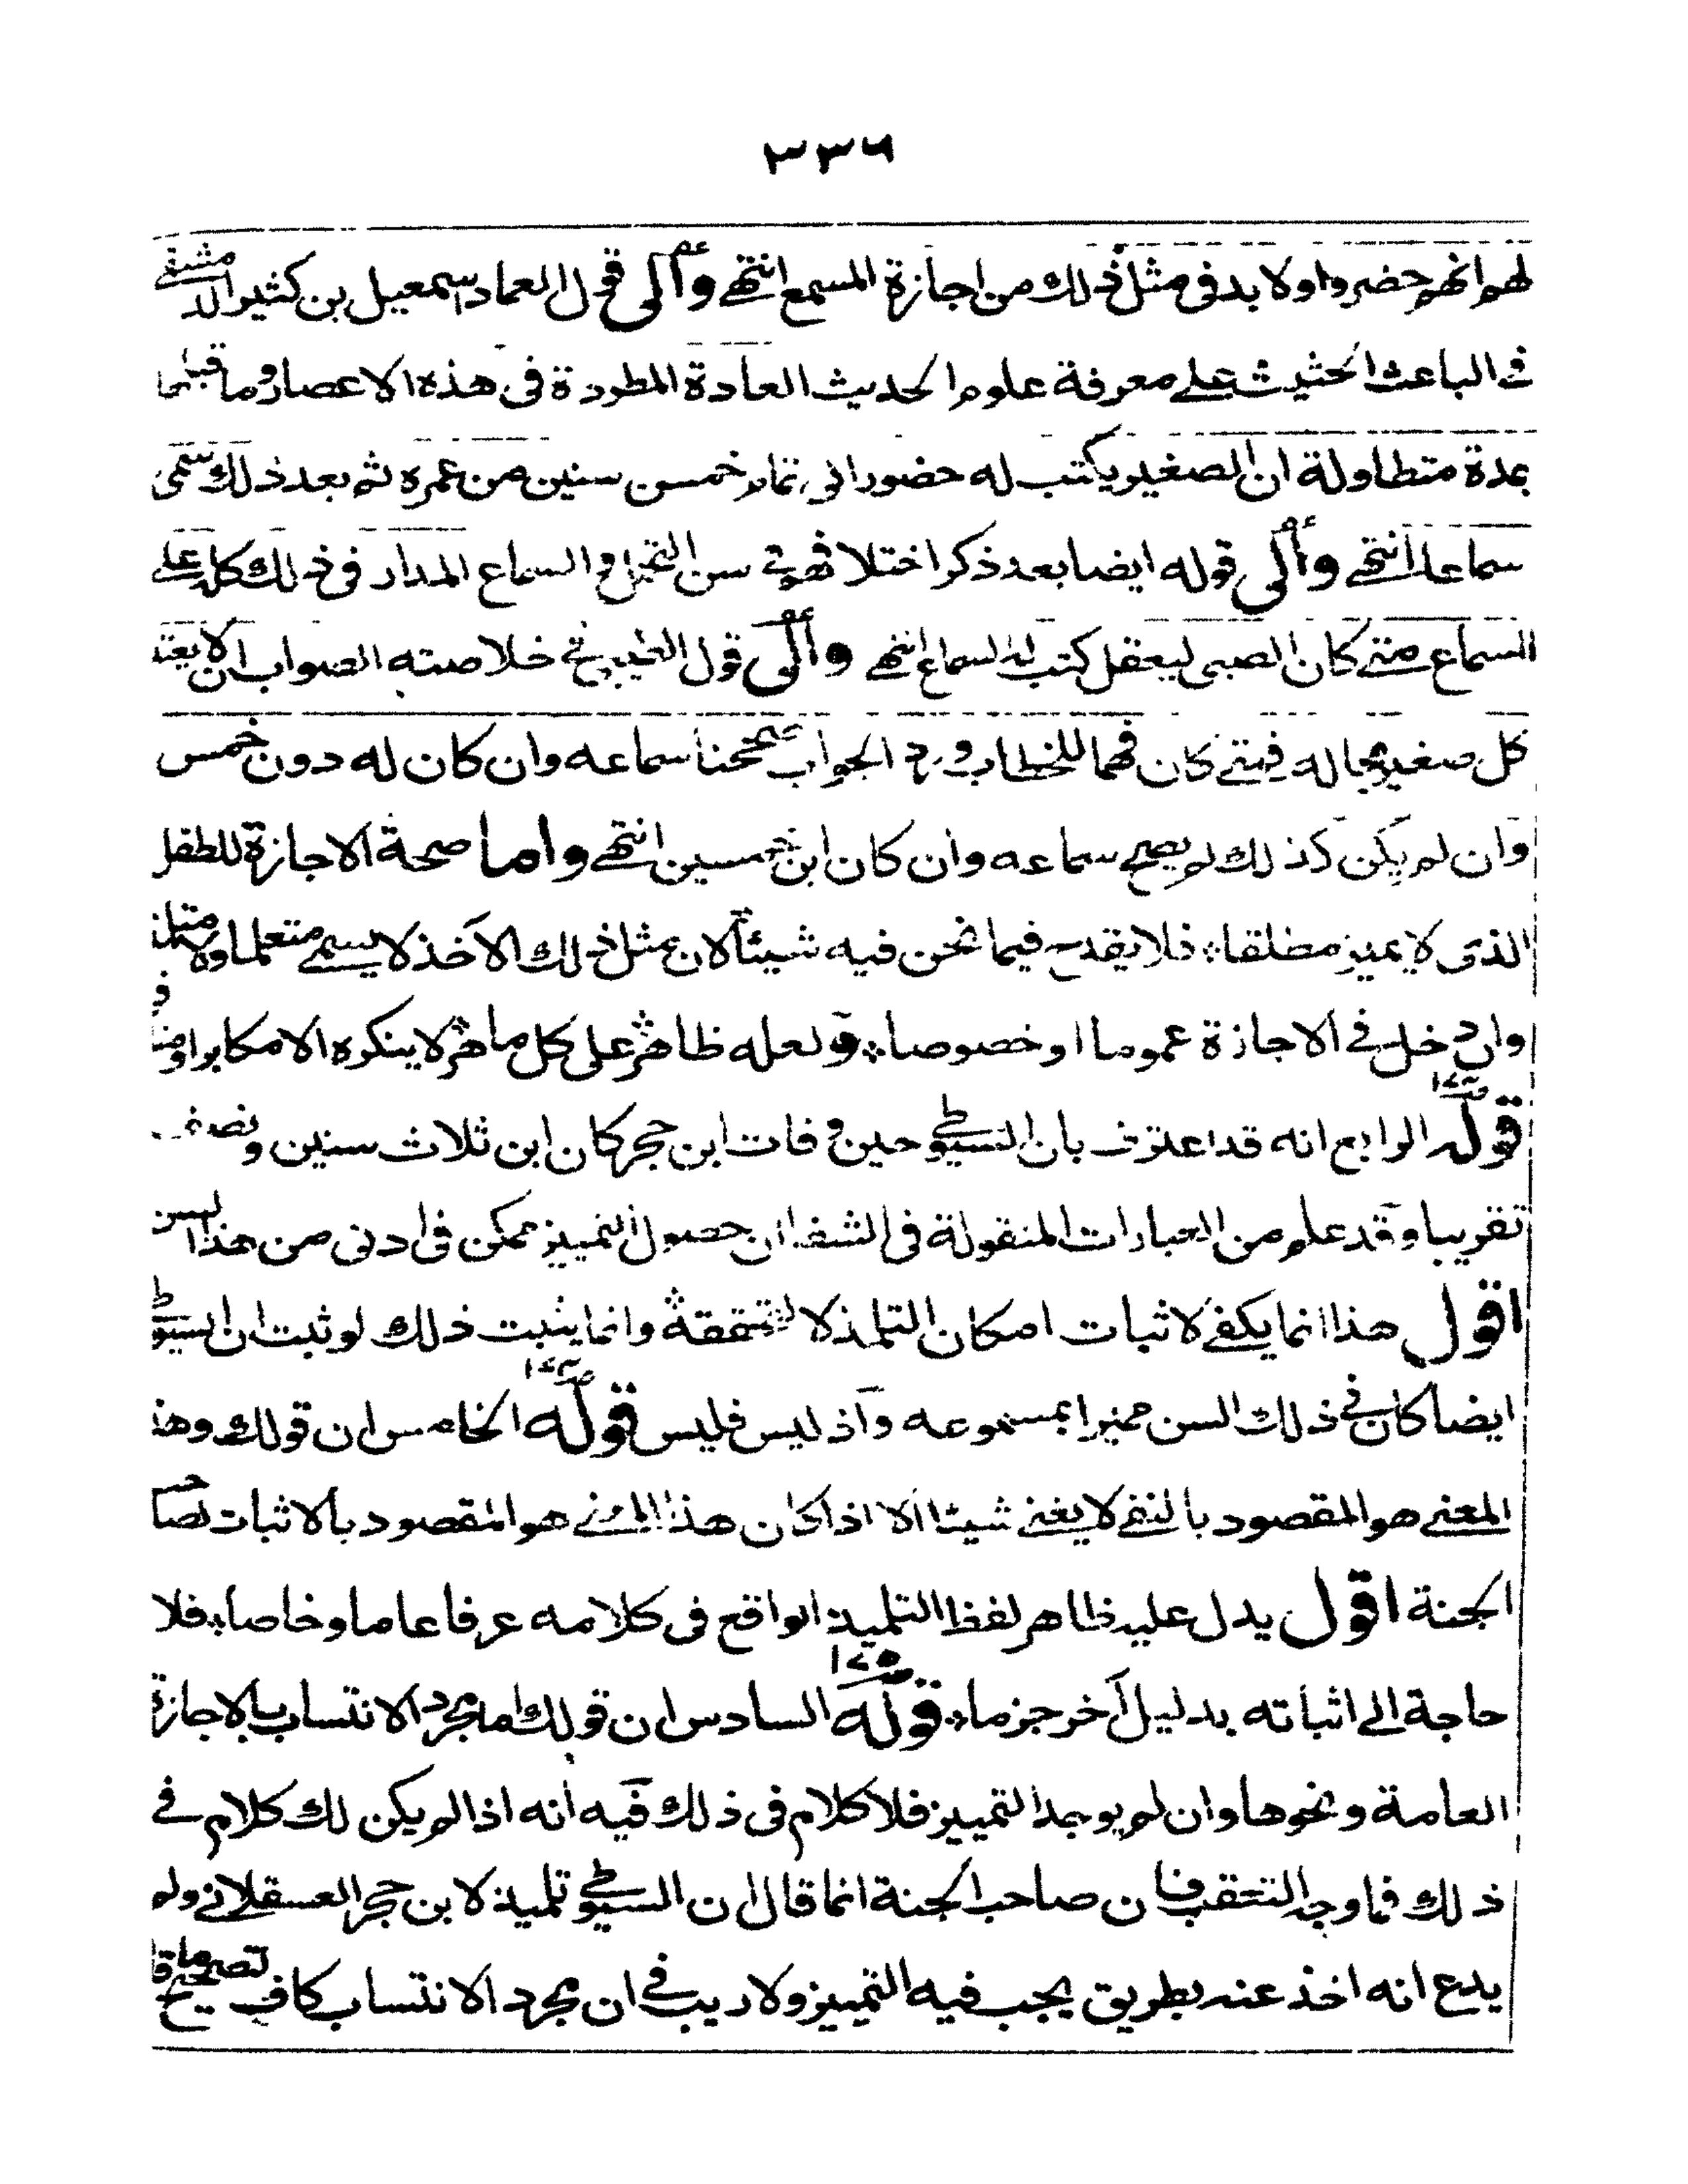 ٣٣٦
لهم انهم حضروا ولا بد فى مثل ذلك من اجازة المسمع انتهى والى قول العماد اسمعيل بن كثير الدمشقى
فى الباعث الحثيث على معرفة علوم الحديث العادة المطردة فى هذه الاعصار وما قبلها
بمدة متطاولة ان الصغير يكتب له حضورا الى تمام خمس سنين من عمره ثم بعد ذلك سمى
سماعا انتهى والى قوله ايضا بعد ذكر اختلافهم فى سن التحمل والسماع المدار فى ذلك كله على
السماع متى كان الصبى ليعقل كتب له السماع انتهى والى قول الطيبى فى خلاصته الصواب ان يعتبر
كل صغير بحاله فمتى كان فهما للخطاب ورد الجواب صححنا سماعه وان كان له دون خمس
وان لم يكن كذلك لم يصح سماعه وان كان ابن خمسين انتهى واما صحة الاجازة للطفل
الذى لا يميز مطلقا فلا يقدح فيما نحن فيه شيئا لان مثل ذلك الآخذ لا يسمى متعلما ولا
وان دخل فى الاجازة عموما او خصوصا ولعله ظاهر على كل ماهر لا ينكره الا مكابر
قوله الرابع انه قد اعترف بان السيوطى حين وفات ابن حجر كان ابن ثلاث سنين ونصف
تقريبا وقد علم من العبارات المنقولة فى الشفا ان حصول التمييز ممكن فى ادنى من هذا السن
اقول هذا انما يكفى لاثبات امكان التلمذ لا لتحققه وانما يثبت ذلك لو ثبت ان السيوطى
ايضا كان فى ذلك السن مميزا بمسموعه واذ ليس فليس قوله الخامس ان قولك وهذا
المعنى هو المقصود بالنفى لا يغنى شيئا الا اذا كان هذا المعنى هو المقصود بالاثبات لصاحب
الجنة اقول يدل عليه ظاهر لفظ التلميذ الواقع فى كلامه عرفا عاما وخاصا فلا
حاجة الى اثباته بدليل آخر جزما قوله السادس ان قولك اما مجرد الانتساب بالاجازة
العامة ونحوها وان لم يوجد التمييز فلا كلام فى ذلك فيه انه اذا لم يكن لك كلام فى
ذلك فما وجه التعقب فان صاحب الجنة انما قال ان السيوطى تلميذ لابن حجر العسقلانى ولم
يدع انه اخذ عنه بطريق يجب فيه التمييز ولا ريب فى ان مجرد الانتساب كاف لتصحيح ما